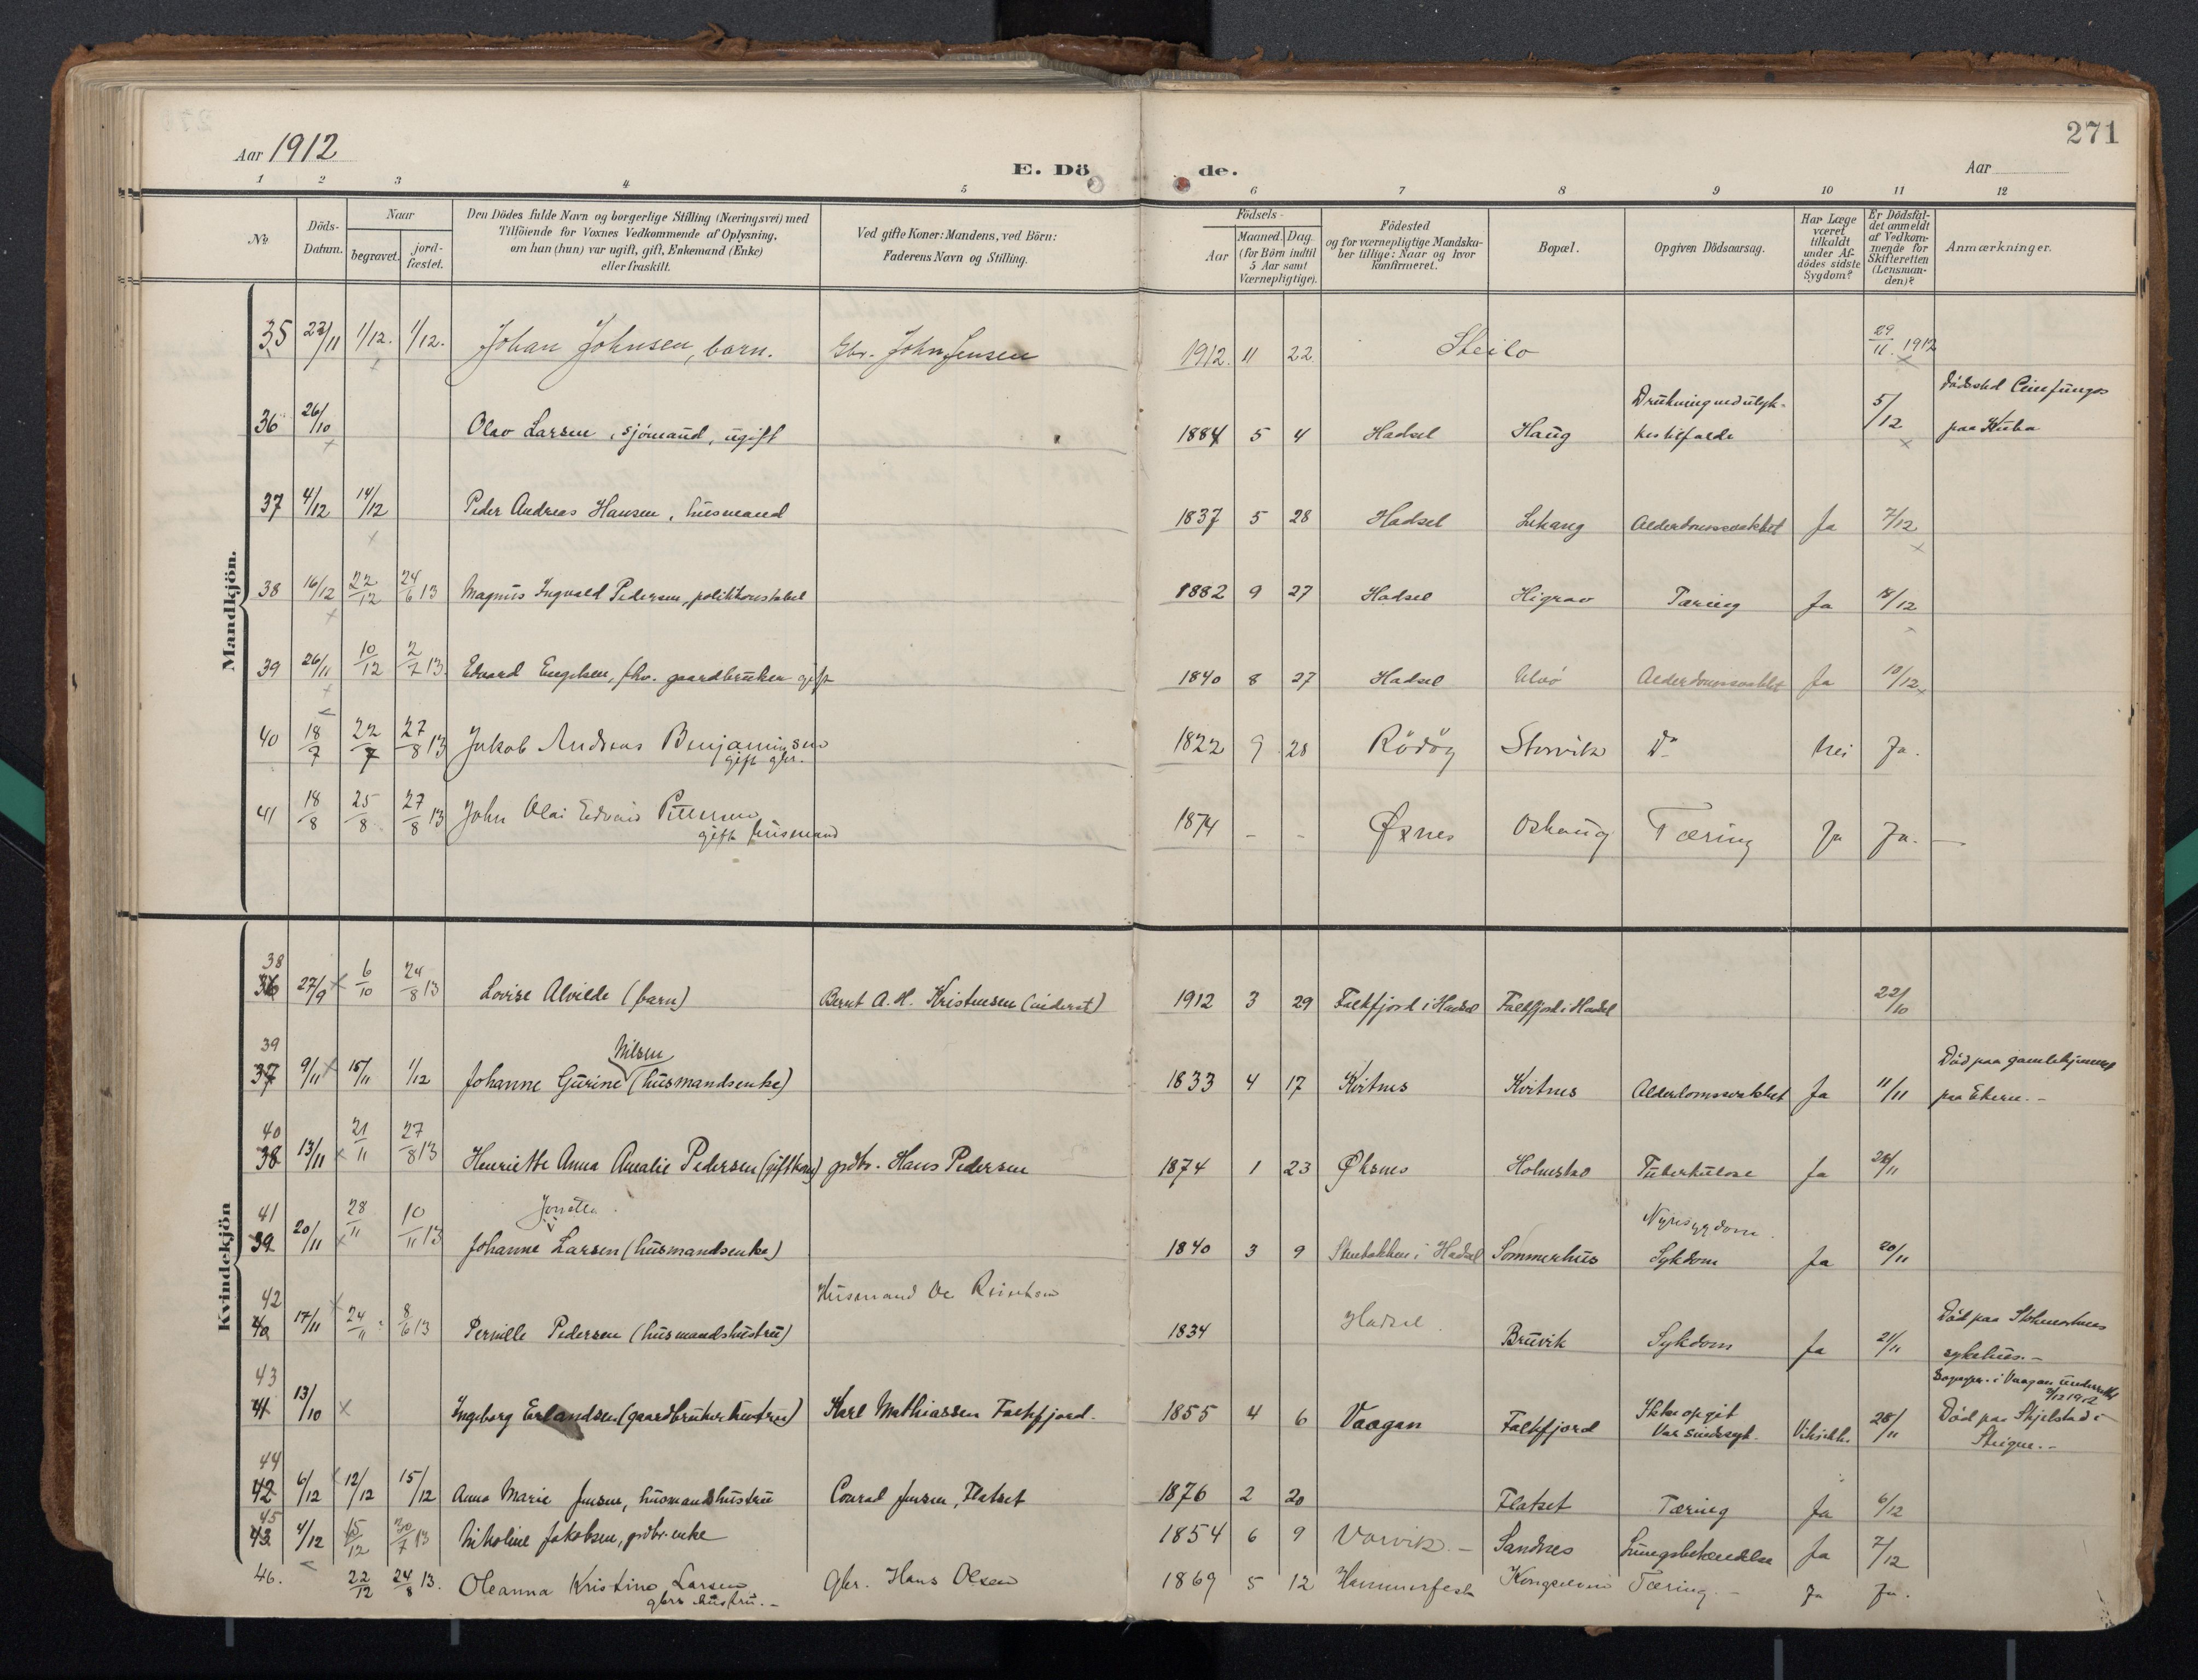 271
Aar 1912
E. Dö de.
Aar
1 2 3 4 5 6 7 8 9 10 11 12
No
Döds-Datum.
Naar
begravet.
jord-fæstet.
Den Dödes fulde Navn og borgerlige Stilling (Næringsvei) med
Tilföiende for Voxnes Vedkommende af Oplysning,
om han (hun) var ugift, gift, Enkemand (Enke)
eller fraskilt.
Ved gifte Koner: Mandens, ved Börn:
Faderens Navn og Stilling.
Födsels-
Aar
Maaned. Dag.
(for Börn indtil
5 Aar samt
Værnepligtige).
Födested
og for værnepligtige Mandska-
ber tillige: Naar og hvor
konfirmeret.
Bopæl.
Opgiven Dödsaarsag.
Har Læge
været
tilkaldt
under Af-
dödes sidste
Sygdom?
Er Dödsfal-
det anmeldt
af Vedkom-
mende for
Skifteretten
(Lensman-
den)?
Anmærkninger.
Mandkjön.
35 22/11 1/12. 1/12. Johan Johnsen, barn. Gbr. John Jensen 1912. 11 22. Steilo 29/11. 1912
36 26/10 Olav Larsen, sjömand, ugift 1884 5 4 Hadsel Haug Drukning ved ulyk-
kestilfælde 5/12 Dödssted Cienfuegos
paa Kuba
37 4/12 14/12 Peder Andreas Hansen, husmand 1837 5 28 Hadsel Lekang Alderdomssvakhet Ja 7/12
38 16/12 22/12 24/6 13 Magnus Ingvald Pedersen, politikonstabel 1882 9 27 Hadsel Higrav Tæring Ja 18/12
39 26/11 10/12 2/7 13. Edvard Engelsen, fhv. gaardbruker gift 1840 8 27 Hadsel Ulvö Alderdomssvakhet Ja 10/12
40 18/7 22/7 27/8 13 Jakob Andreas Benjaminsen
gift gbr. 1822 9 28 Rödöy Storvik Do Nei Ja.
41 18/8 25/8 27/8 13 John Olai Edvard Pettersen
gift husmand 1874 - - Øxnes Oshaug Tæring Ja Ja. -
Kvindekjön
38
36 27/9 6/10 24/8 13 Lovise Alvilde (barn) Bernt A. H. Kristensen (inderst) 1912 3 29 Falkfjord i Hadsel Falkfjord i Hadsel 22/10
39
37 9/11 15/11 1/12 Johanne Gurine Nilsen (husmandsenke) 1833 4 17 Kvitnes Kvitnes Alderdomssvakhet Ja 11/11 Död paa gamlehjemmet
paa Ekern. -
40
38 13/11 21/11 27/8 13 Henriette Anna Amalie Pedersen (gift kone) grdbr. Hans Pedersen 1874 1 23 Øksnes Holmstad Tuberkulose Ja 26/11
41
39 20/11 28/11 10/11 13 Johanne Jonetta Larsen (husmandsenke) 1840 3 9 Stenbakken i Hadsel Sommerhus Nyresygdom.
Sykdom Ja 20/11
42
40 17/11 24/11 8/6 13 Pernille Pedersen (husmandshustru) Husmand Ole Reinholdsen 1834 Hadsel. Bruvik Sykdom Ja 21/11 Död paa Stokmarknes
sykehus. -
43
41 13/10 Ingeborg Erlandsen (gaardbrukerhustru) Karl Mathiassen Falkfjord. 1855 4 6 Vaagan Falkfjord Ikke opgit
Var sindssyk. 28/11 Sogepr. i Vaagan underrettet
2/12 1912
Död paa Skjelstad i
Steigen. -
44
42 6/12 12/12 15/12 Anna Marie Jensen, husmandshustru Conrad Jensen, Flatset 1876 2 20 Flatset Tæring Ja 6/12
45
43 4/12 15/12 30/7 13 Nikoline Jakobsen, grdbr. enke 1854 6 9 Vorvik. - Sandnes Lungebetændelse Ja 7/12
46. 22/12 24/8 13. Oleanna Kristine Larsen
gbrs hustru. - Gbr. Hans Olsen 1869 5 12 Hammerfest Tæring. - Ja Ja.